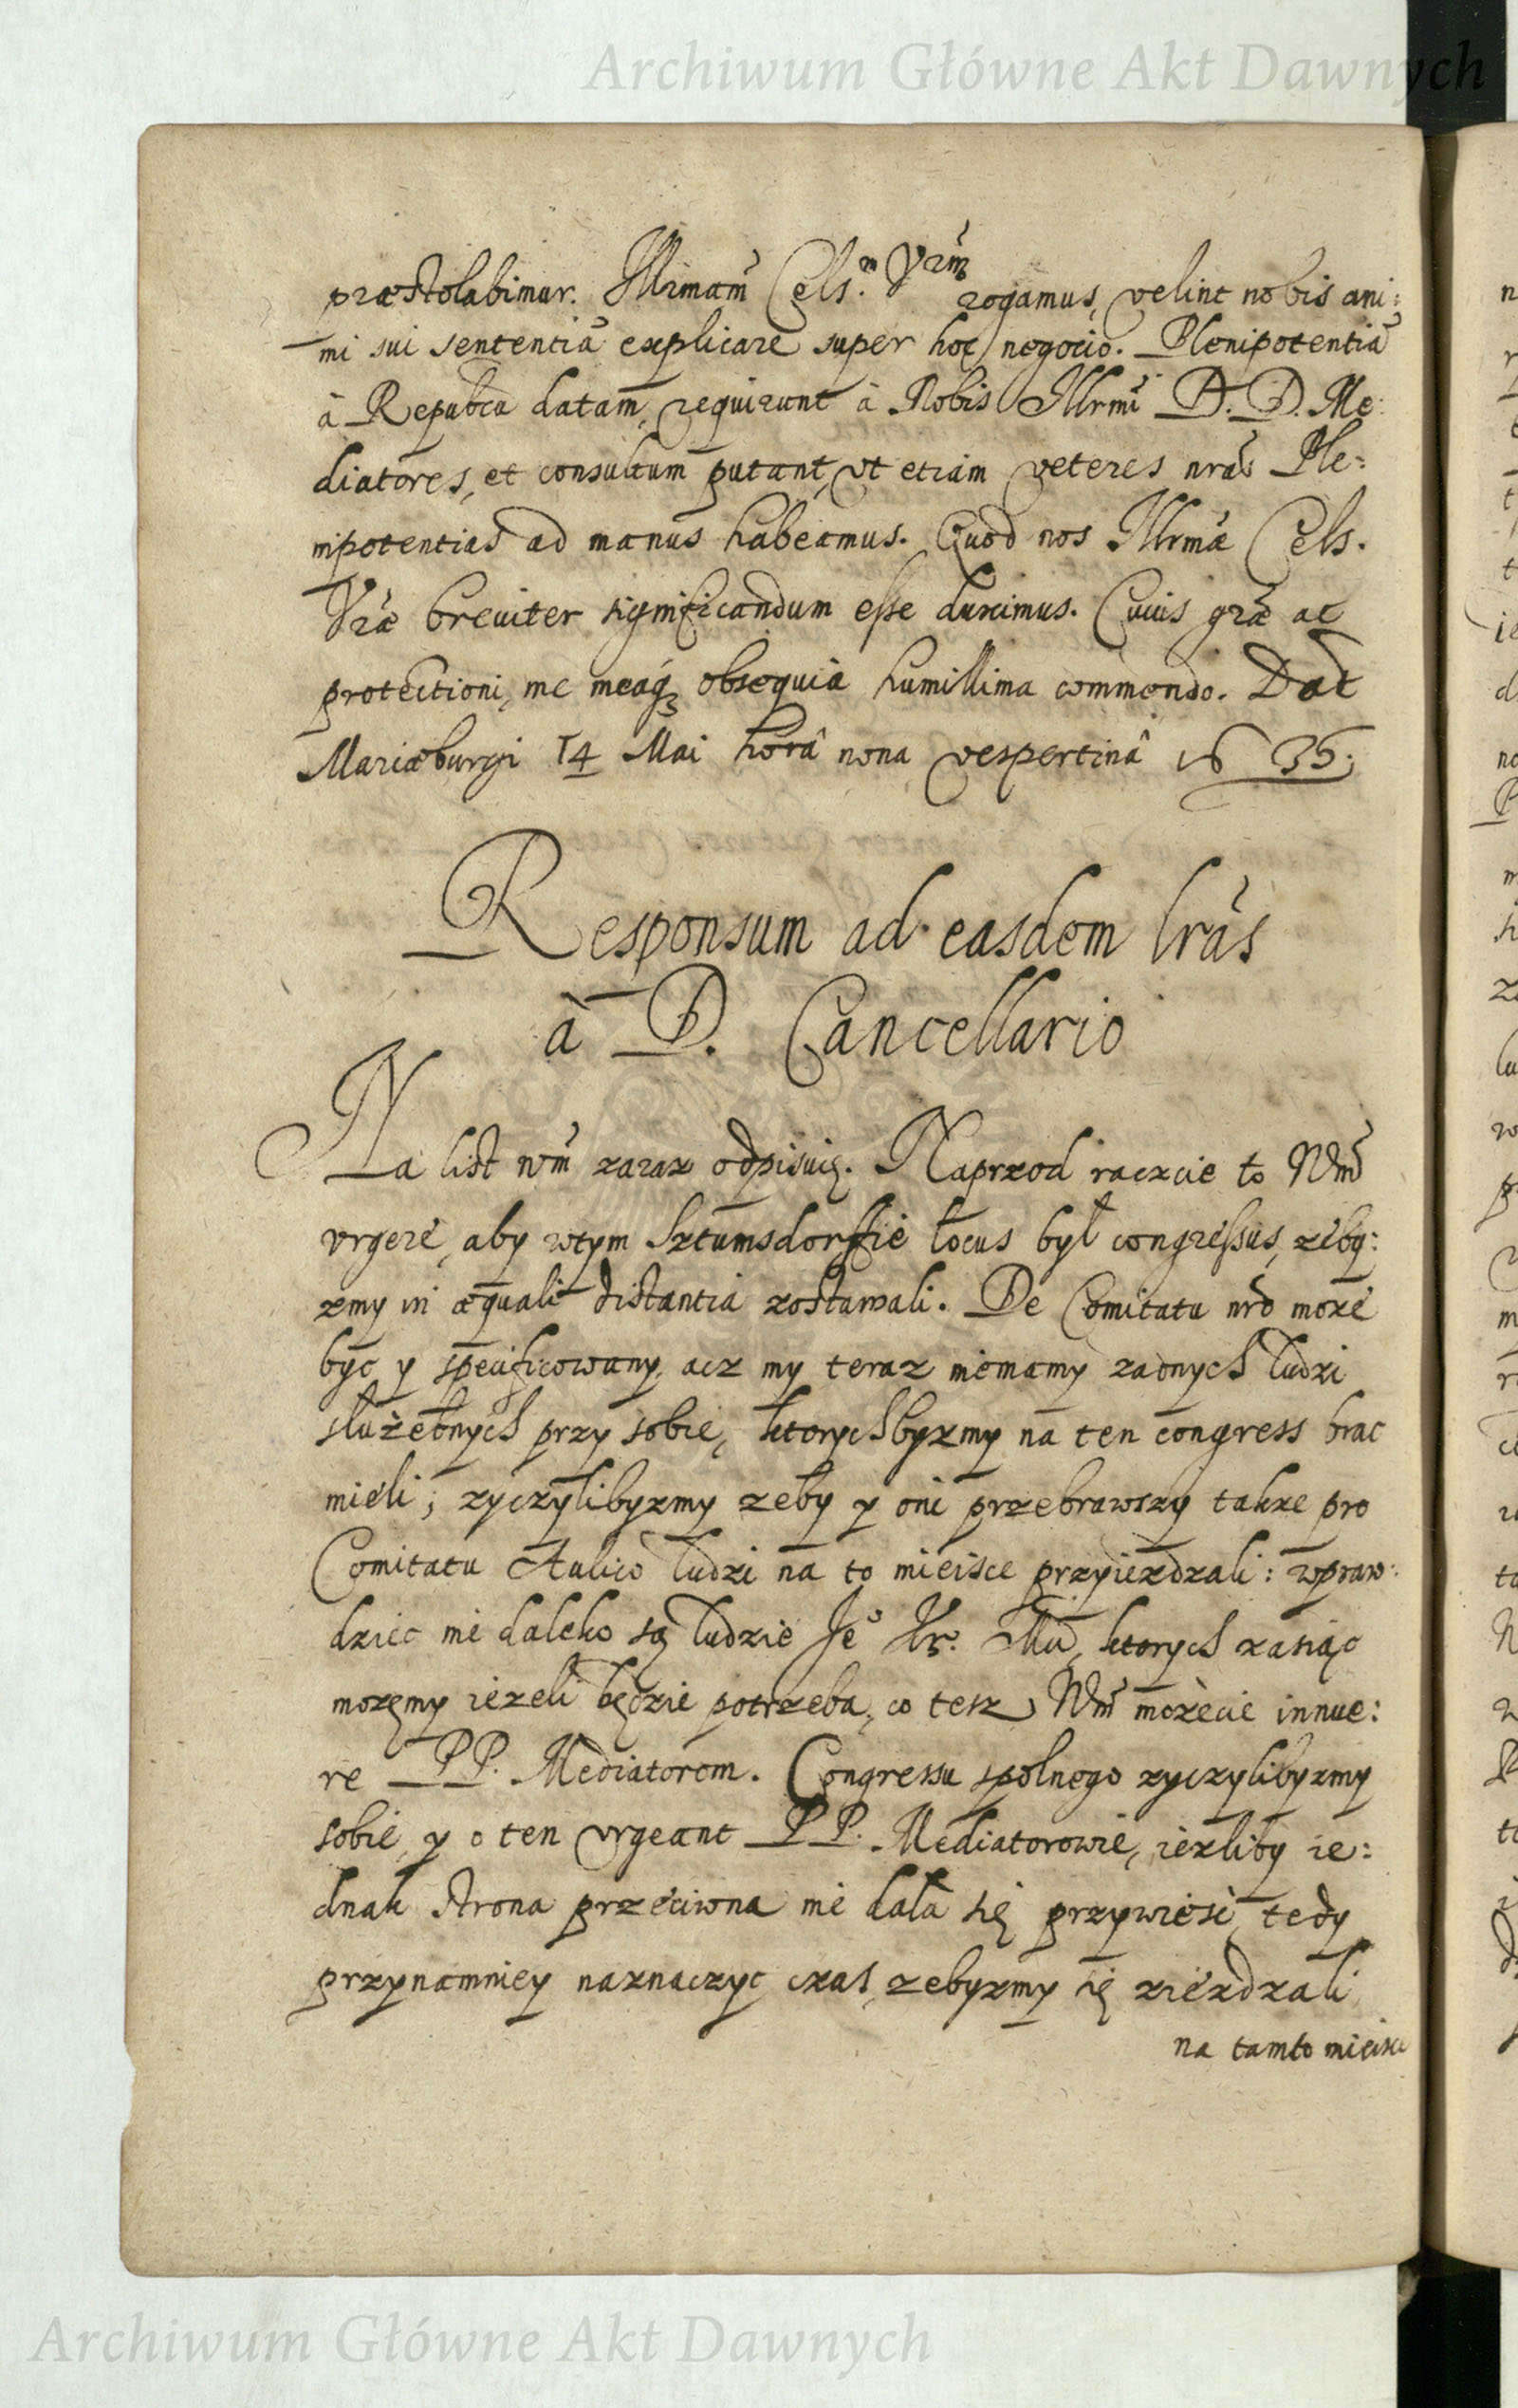 Archiwum Główne Akt Dawnych
præstolabimur. Illrmam̃ Cels.m Vrm̃ rogamus, velint nobis ani:
mi sui sententiã explicare super hoc negocio. Plenipotentiã
à Repubca datam, requirunt à Nobis Illrmi D. D. Me:
diatores, et consultum putant, vt etiam veteres nrãs Ple:
nipotentias ad manus habeamus. Quod nos Illrmæ Cels.
Vræ breuiter significandum esse duximus. Cuius græ ac
protectioni, me meaq3 obsequia humillima commendo. Dat
Mariæburgi 14 Mai horâ nona vespertinâ 1635.
Responsum ad easdem lrãs
à D. Cancellario
Na list Wm̃ zaraz odpisuię. Naprzod raczcie to Wm̃
vrgere, aby wtym Sztumsdorffie locus był congressus, zeby:
zmy in æquali distantia zostawali. De Comitatu nrõ może
bÿc y specificowany, acz my teraz niemamy zadnych ludzi
służebnych przy sobie, ktorychbyzmy na ten congress brac
mieli; zyczylibyzmy zeby y oni przebrawszy takze pro
Comitatu Aulico ludzi na to mieisce przyiezdzali: wpraw:
dziec nie daleko są ludzie Jeo Kr. Mci, ktorych zasiąc
mozęmy iezeli będzie potrzeba, co tesz Wm̃ możecie innue:
re PP. Mediatorom. Congressu spolnego zyczylibyzmy
sobie, y o ten vrgeant PP. Mediatorowie, iezliby ie:
dnak strona przeciwna nie dała się przywiesc, tedy
przynamniey naznaczyc czas, zebyzmy się ziezdzali
na tamto mieisce
Archiwum Główne Akt Dawnych